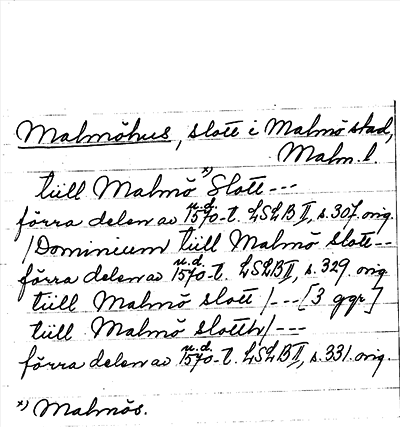 Malmöhus, slott i Malmö stad,
Malm. l.
tiill Malmö *) Slott ---
förra delen av u.d. 1570-t. LSLB II, s. 307. orig.
/Dominium tiill Malmö slott--
förra delen av u.d. 1570-t. LSLB II, s. 329. orig.
tiill Malmö slott /---[3 ggr]
tiill Malmö slotth/---
förra delen av u.d. 1570-t. LSLB II, s. 331. orig.
*) Malmös.